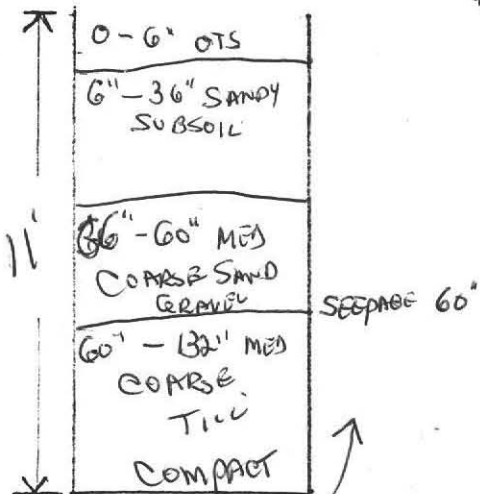 0-6" OTS
6"-36" SANDY
SUBSOIL
11'
36"-60" MED
COARSE SAND
GRAVEL
SEEPAGE 60"
60"-132" MED
COARSE
TILL
COMPACT